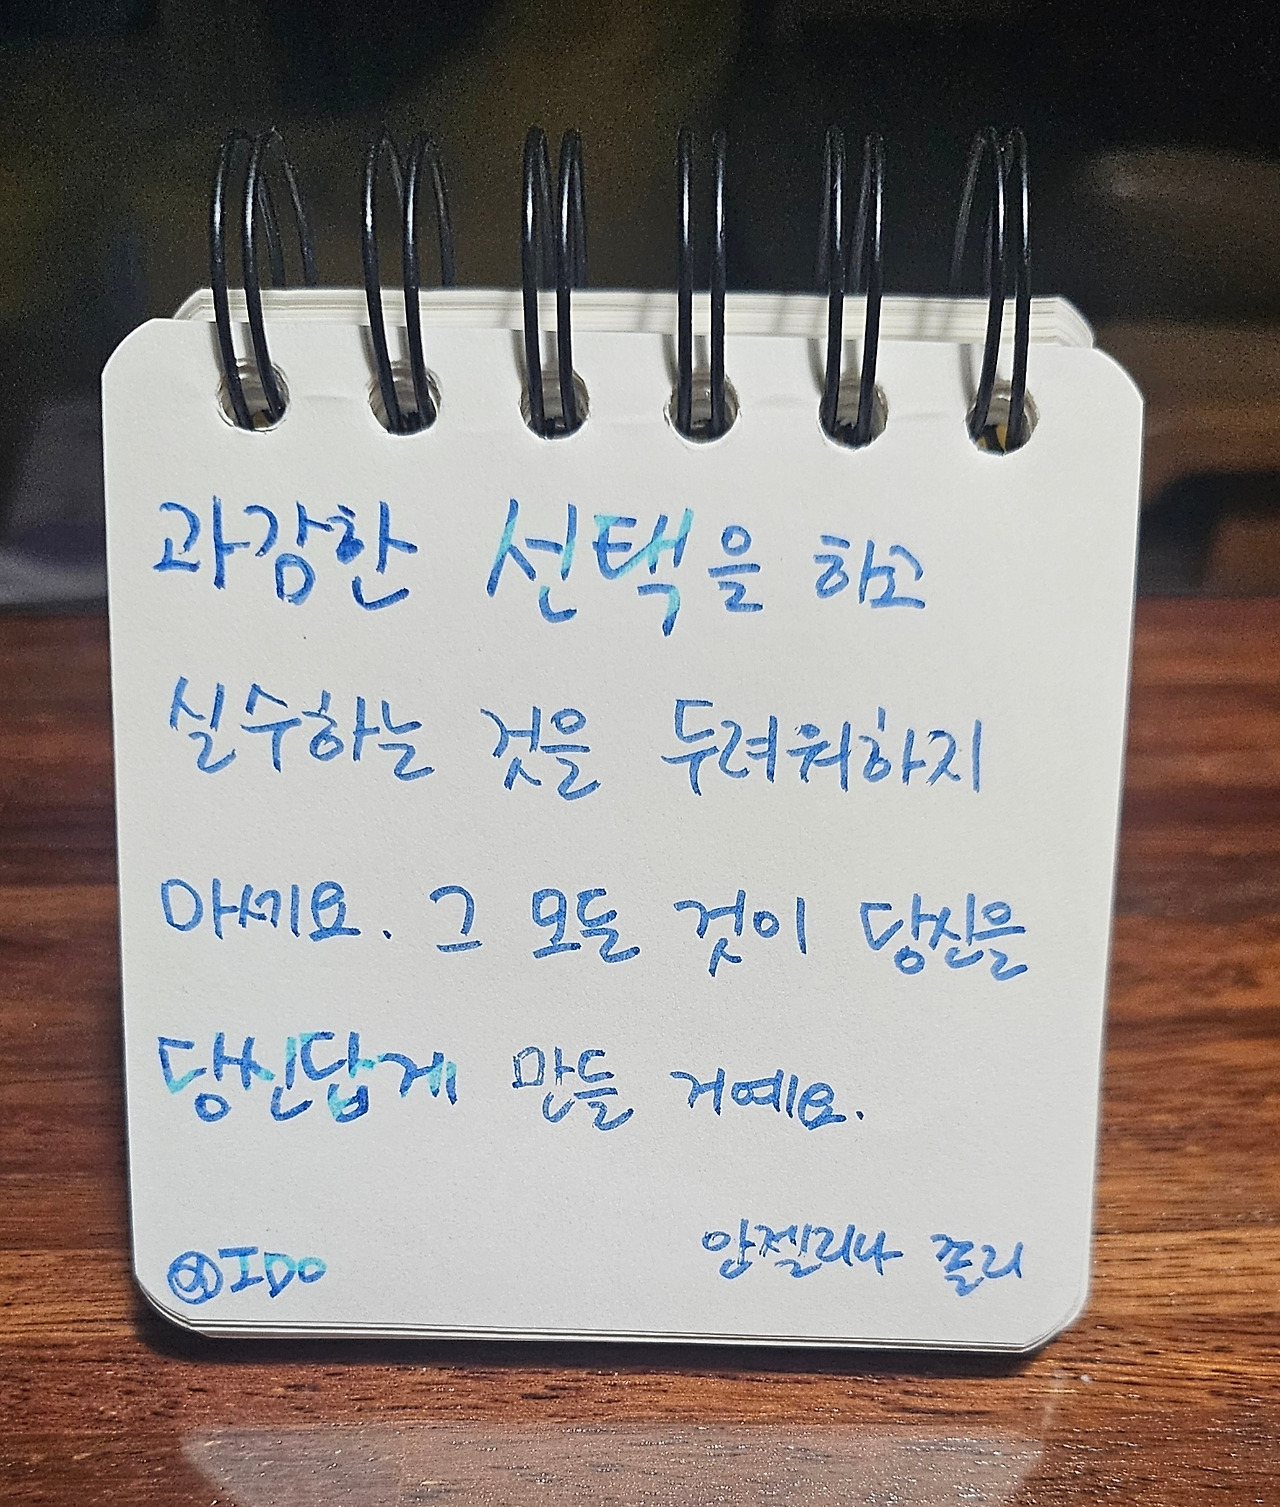 과감한 선택을 하고
실수하는 것을 두려워하지
마세요. 그 모든 것이 당신을
당신답게 만들 거예요.
안젤리나 졸리
IDO